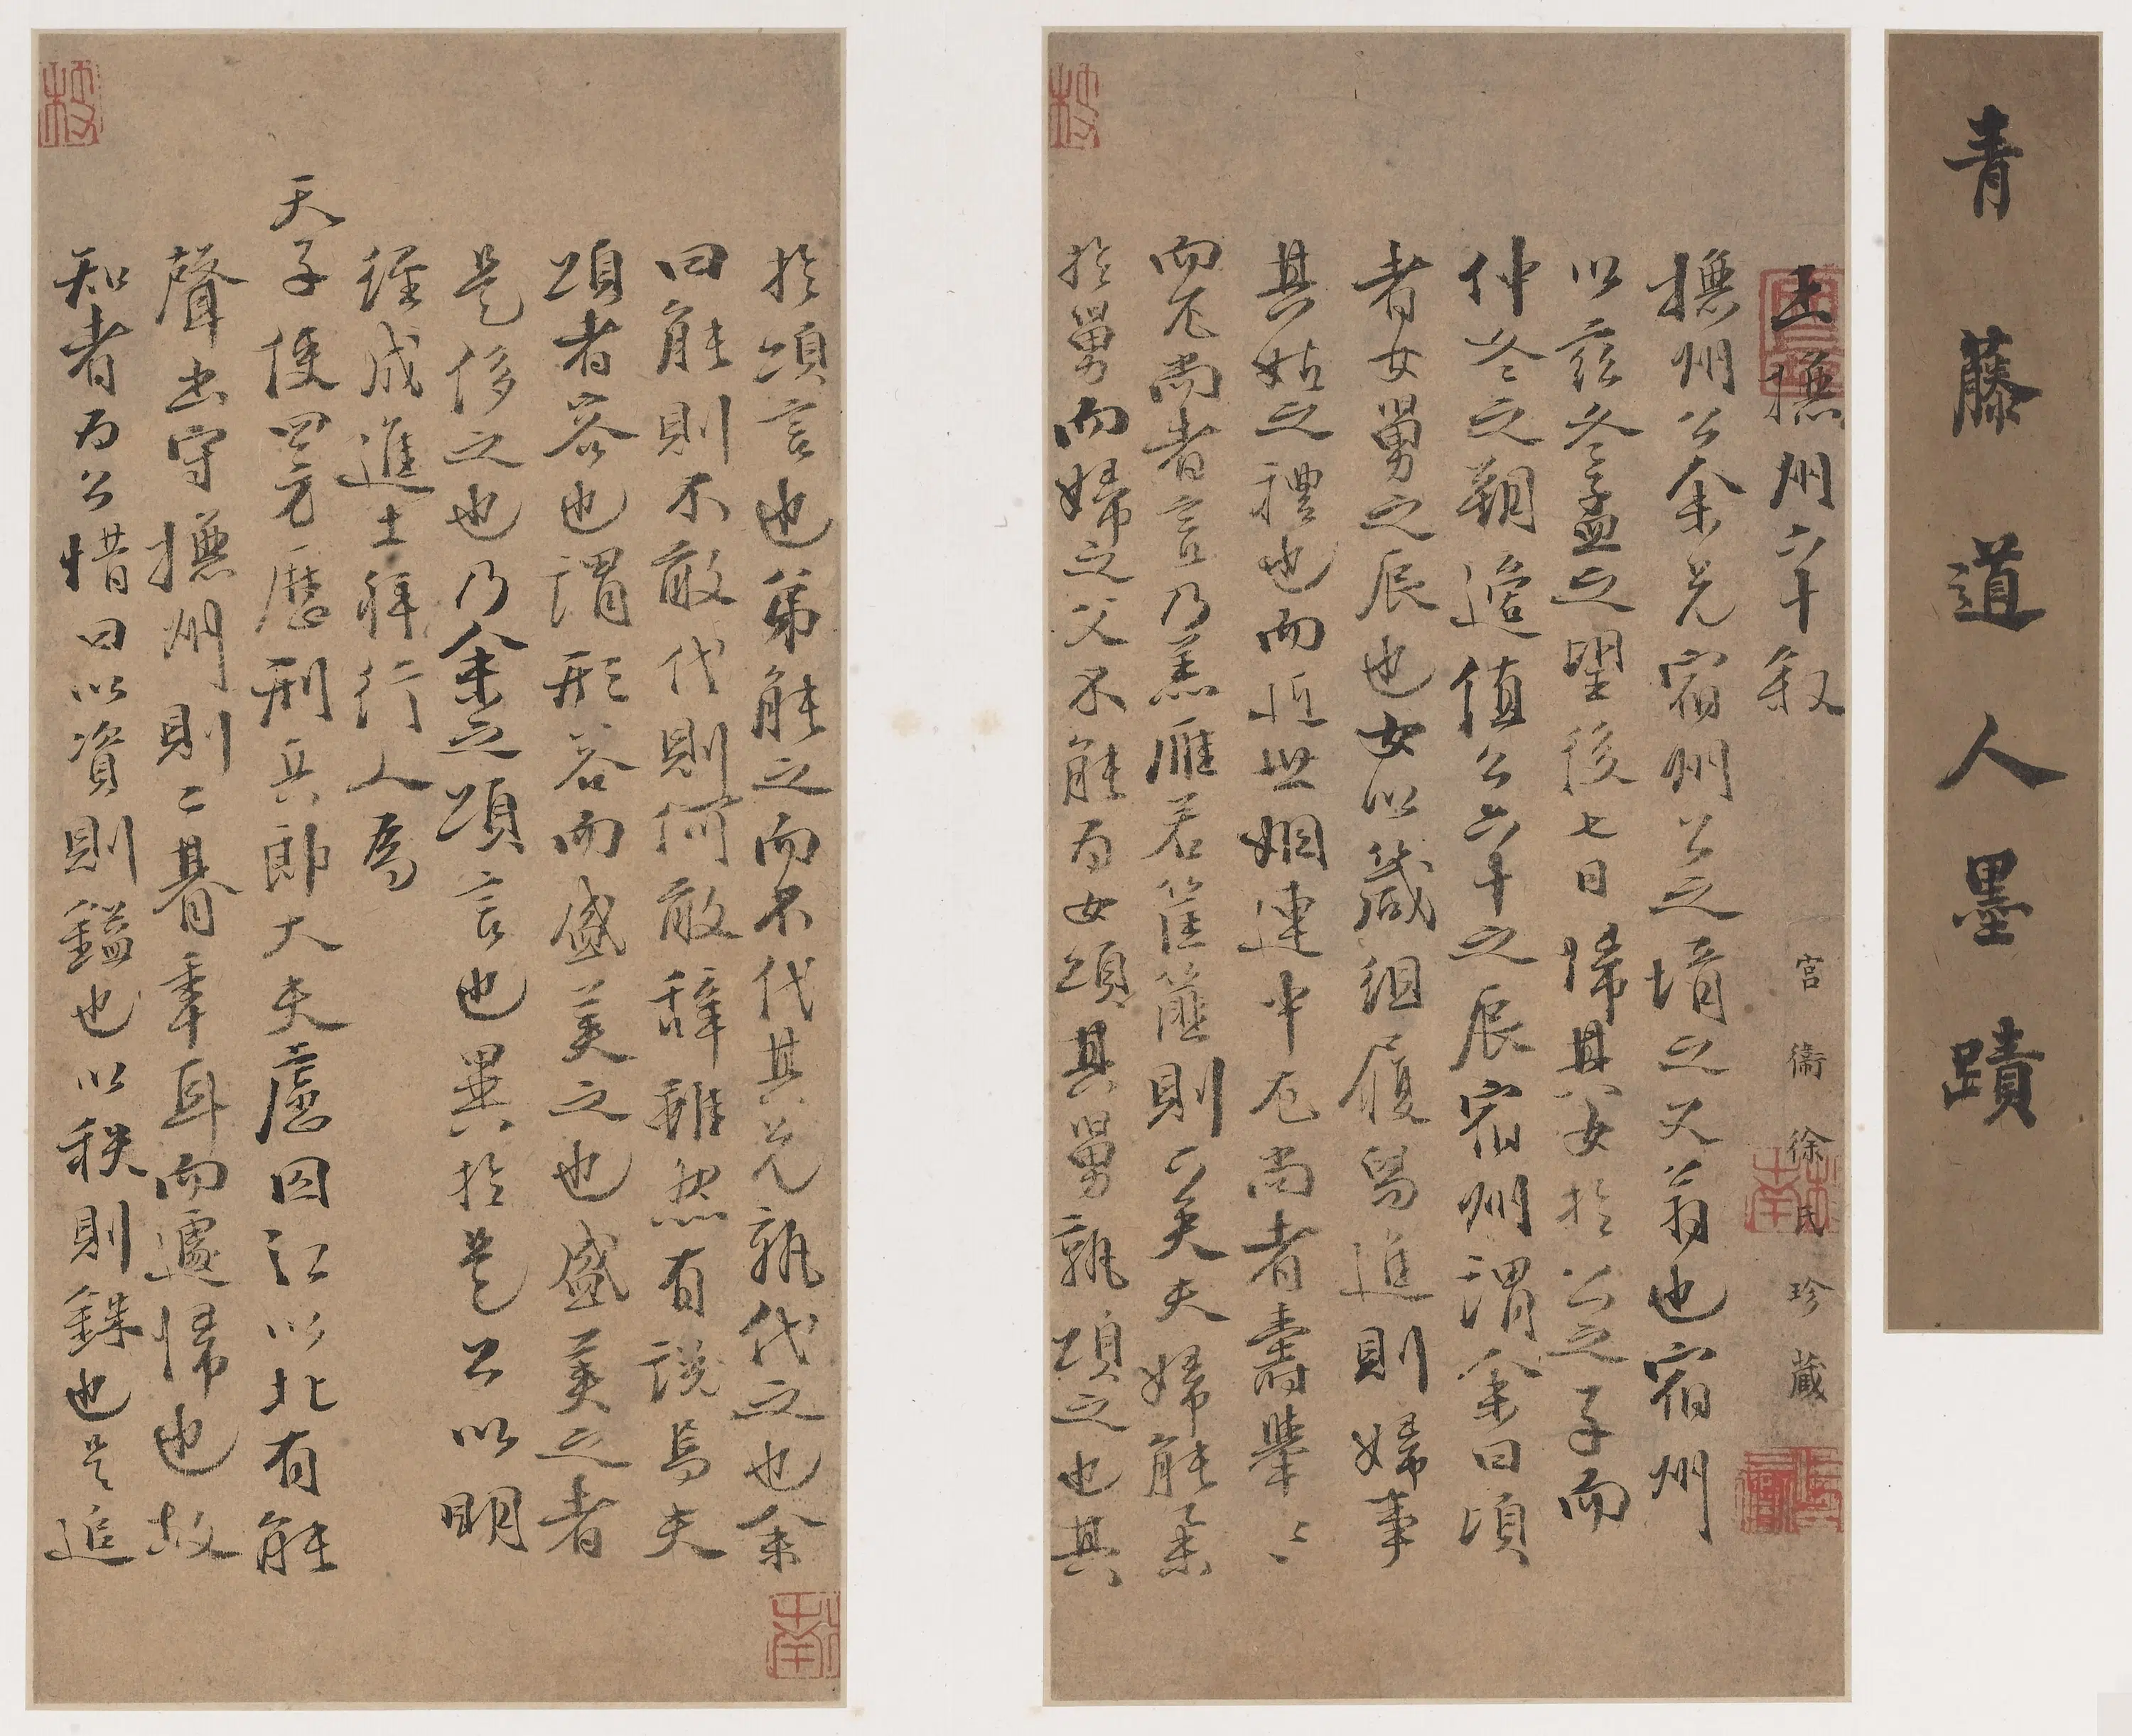 青藤道人墨蹟
王撫州六十敘
宮衞徐氏珍藏
撫州公余兄宿州公之壻之父翁也宿州
以茲冬孟之望後七日歸其女於公之子而
仲冬之朔適值公六十之辰宿州謂余曰頃
者女舅之辰也女以箴組履舄進則婦事
其姑之禮也而近世姻連中不尚者壽舉〻
而不尚者言乃羔雁若筐篚則可矣夫婦能業
於舅而婦之父不能為女頌其舅孰頌之也其
於頌言也弟能之而不代其兄孰代之也余
曰能則不敢代則何敢辭雖然有說焉夫
頌者容也謂形容而盛美之也盛美之者
是侈之也乃余之頌言也異於是公以明
經成進士拜行人為
天子使四方歷刑兵郎大夫慮囚江以北有能
聲出守撫州則二朞率耳而遽歸也故
知者為公惜曰以資則鎰也以秩則銖也是追